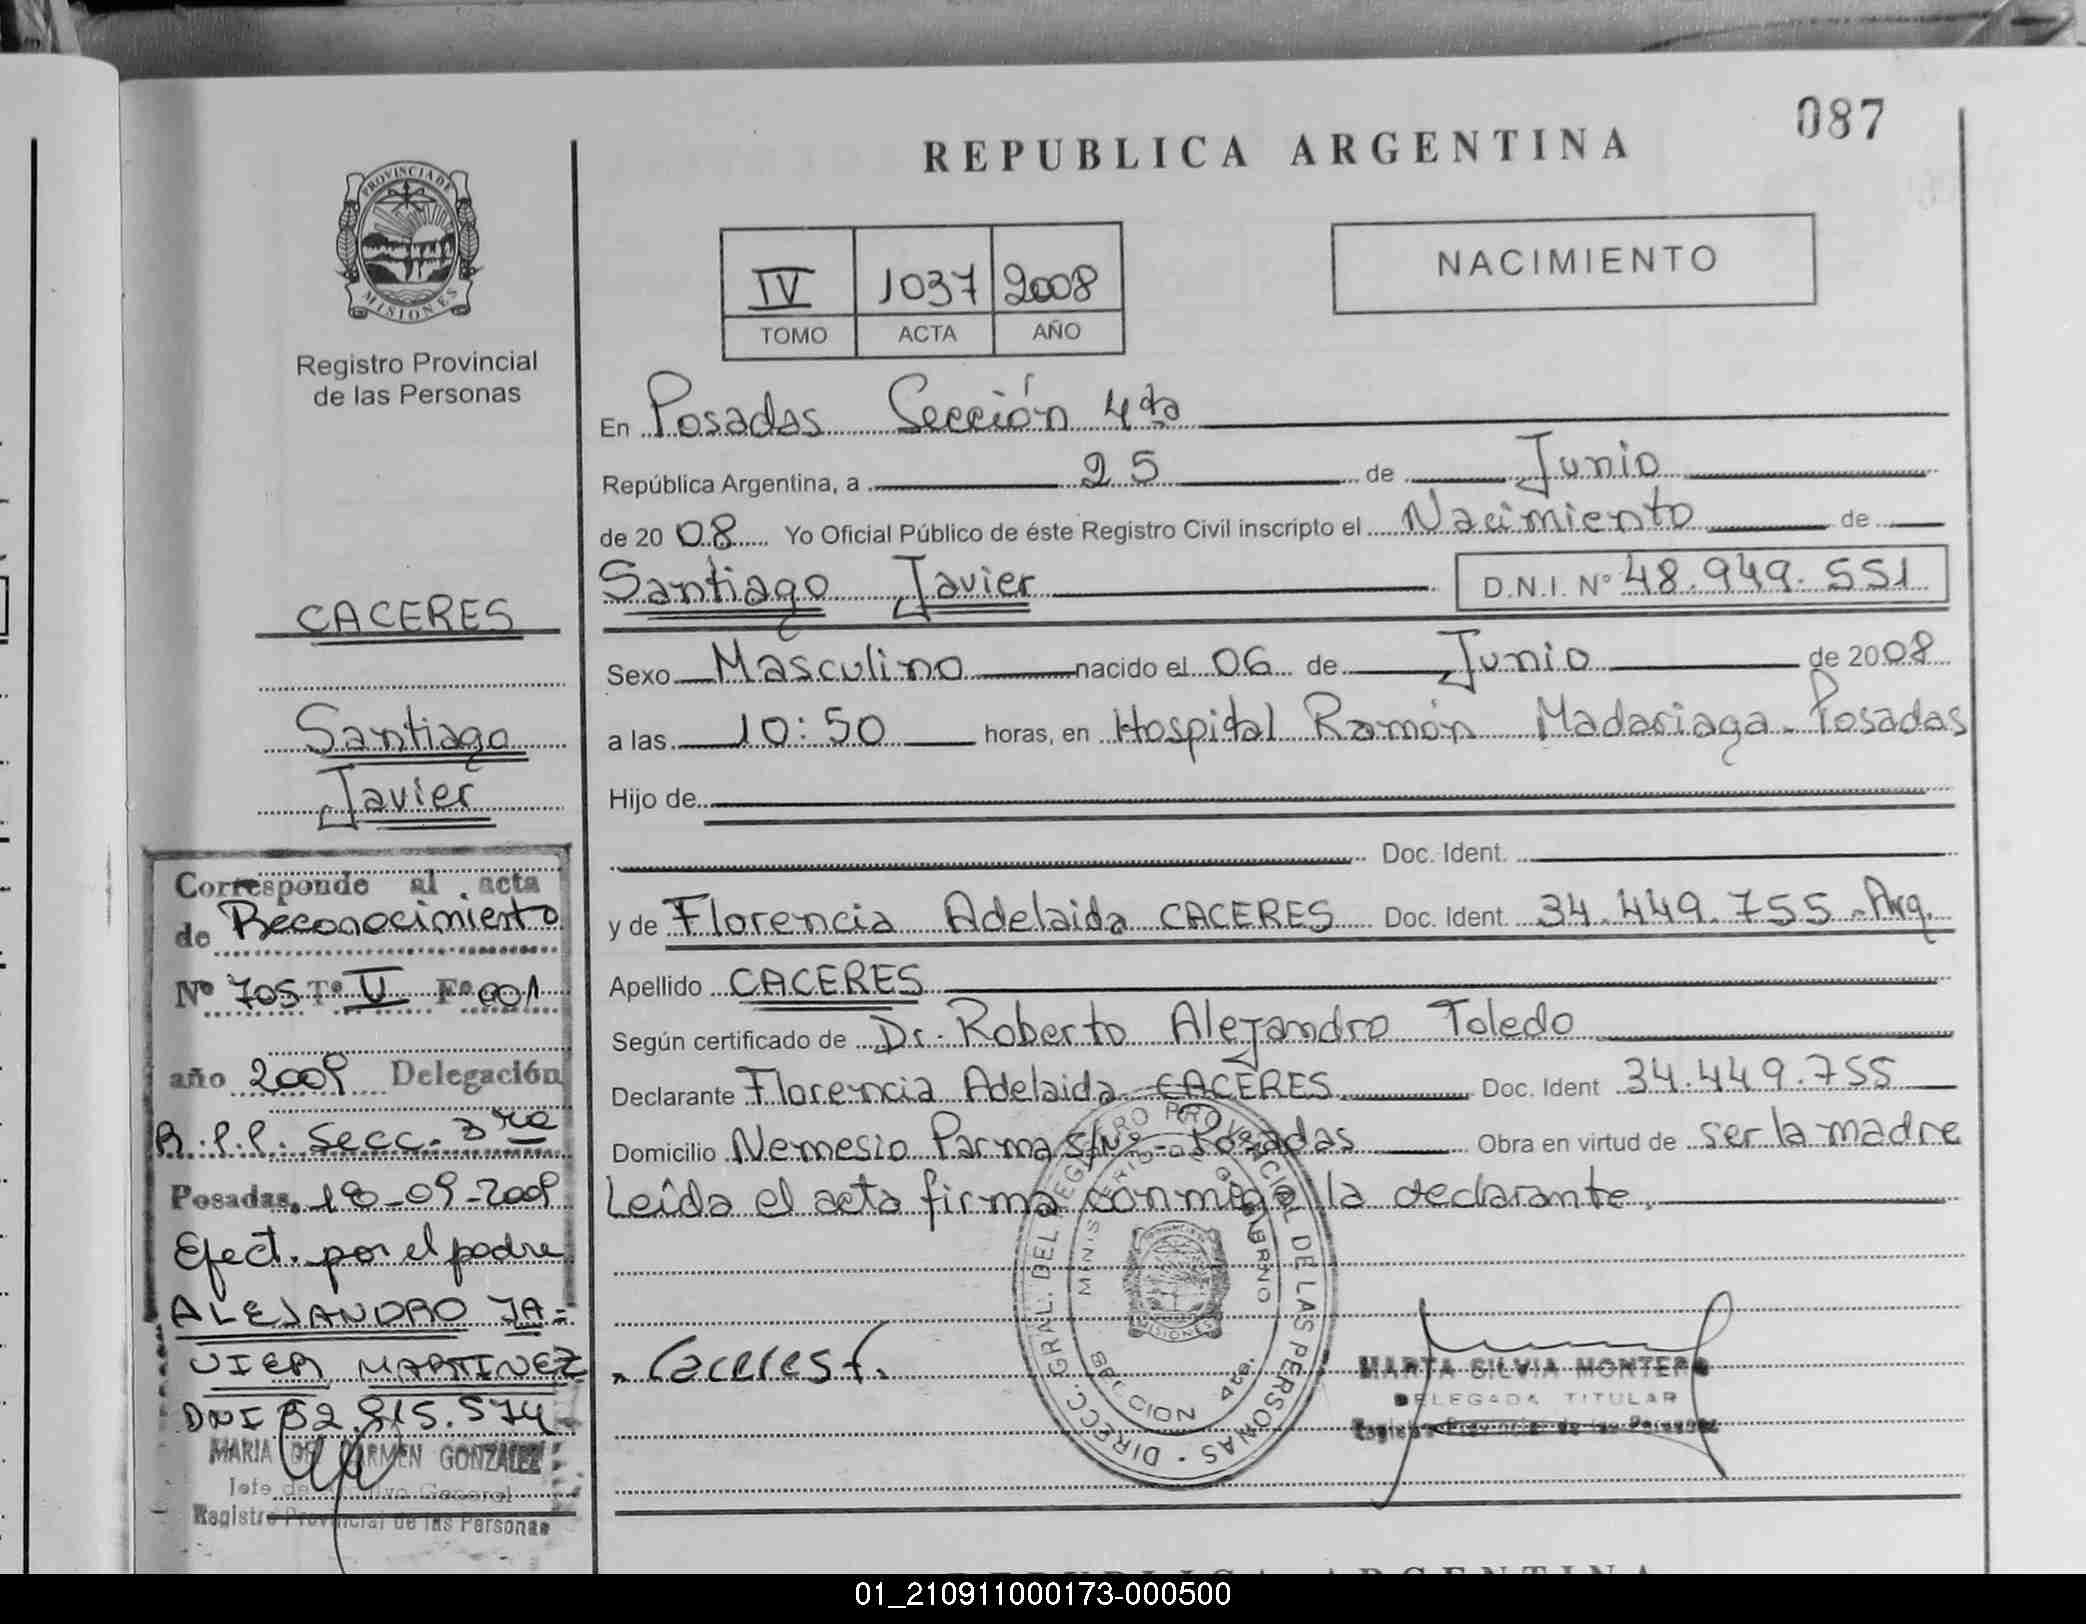 087
REPUBLICA ARGENTINA
PROVINCIA DE
MISIONES
Registro Provincial
de las Personas
IV 1037 2008
TOMO ACTA AÑO
NACIMIENTO
En Posadas Sección 4ta
República Argentina, a 25 de Junio
de 2008 Yo Oficial Público de éste Registro Civil inscripto el Nacimiento de
Santiago Javier D.N.I. Nº 48.949.551
Sexo Masculino nacido el 06 de Junio de 2008
a las 10:50 horas, en Hospital Ramón Madariaga - Posadas
Hijo de
Doc. Ident.
y de Florencia Adelaida CACERES Doc. Ident. 34.449.755 - Arg.
Apellido CACERES
Según certificado de Dr. Roberto Alejandro Toledo
Declarante Florencia Adelaida CACERES Doc. Ident 34.449.755
Domicilio Nemesio Parma s/Nº - Posadas Obra en virtud de ser la madre
Leída el acta firma conmigo la declarante.
Caceres f.
DIRECC. GRAL. DEL REGISTRO PROVINCIAL DE LAS PERSONAS
MINISTERIO DE GOBIERNO
MISIONES
SECCION 4ta.
MARTA SILVIA MONTERO
DELEGADA TITULAR
Registro Provincial de las Personas
CACERES
Santiago
Javier
Corresponde al acta
de Reconocimiento
Nº 705 Tº V Fº 001
año 2009 Delegación
R.P.P. Secc. 3ra
Posadas, 18-09-2009
Efect. por el padre
ALEJANDRO JA-
VIER MARTINEZ
DNI 32.815.574
MARIA DEL CARMEN GONZALEZ
Jefe de Archivo General
Registro Provincial de las Personas
REPUBLICA ARGENTINA
01_210911000173-000500